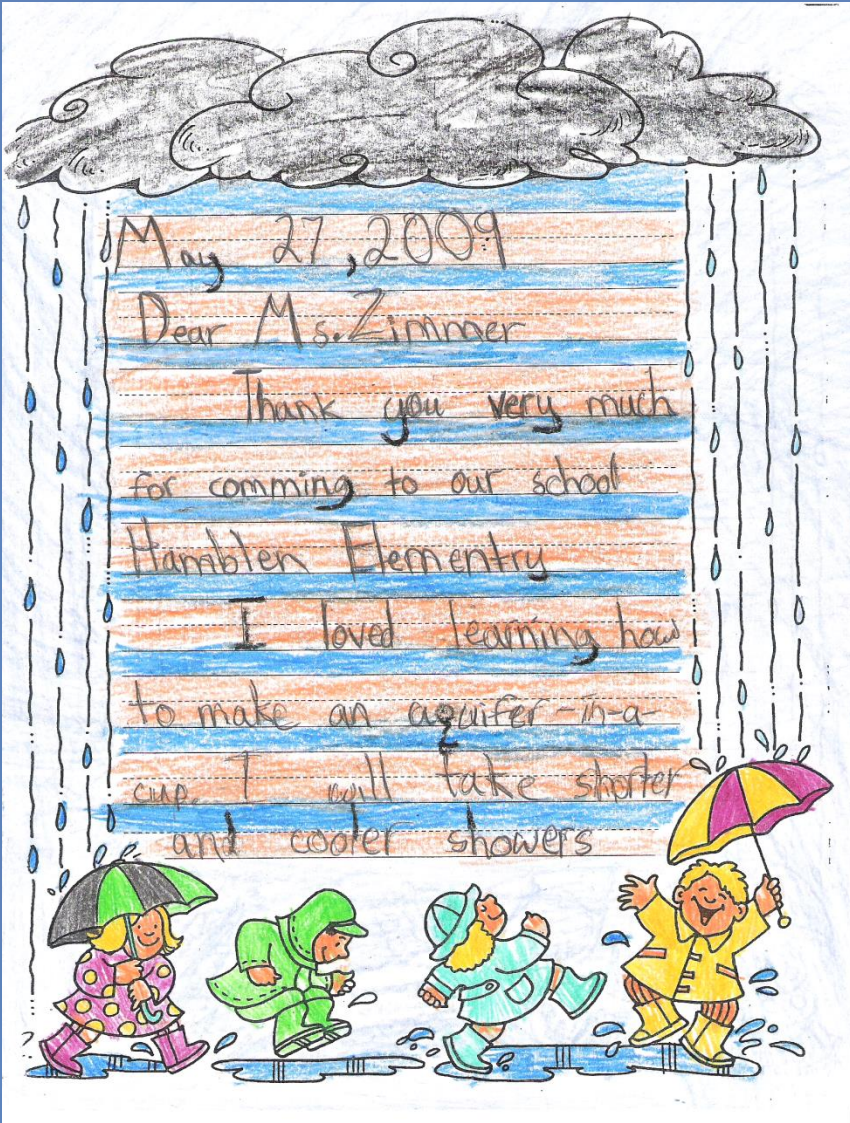 May 27, 2009
Dear Ms. Zimmer
Thank you very much
for comming to our school
Hamblen Elementry
I loved learning how
to make an aquifer-in-a-
cup. I will take shorter
and cooler showers